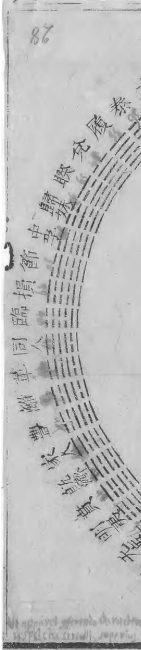 泰
履
兌
睽
歸妹
中孚
節
損
臨
同人
革
離
豐
家人
既濟
賁
明夷